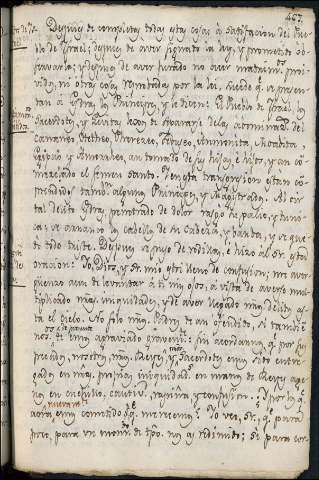 467.
Despues de completas todas estas cosas à satisfacion del Pue-
blo de Israel; despues de aver firmado la ley, y prometido ob-
servarla; y despues de aver jurado no aver matrim.os proi-
vidos, ni otra cosa reprobada por la lei, sucede q.e se presen-
tan a Esdras los Principes, y le dicen: El Pueblo de Israel, los
Sacerdotes, y Levitas acaban de separarse de las abominac.s del
Cananeo, Etheeo, Pherezeo, Jebuseo, Ammonita, Moabita,
Egipcio y Amorrheo, an tomado de sus hijas e hijos, y an co-
mezclado el semen santo. En esta transgresion estan com-
prehendidos tambien algunos Principes, y Magistrados. Al oir
tal delito Esdras, penetrado de dolor rasgo su palio, y tuni-
ca; se arranco los cabellos de su cabeza, y barba, y se que-
do todo triste. Despues se puso de rodillas, è hizo al Sr. esta
oracion: Yo, Dios, y Sr. mio estoi lleno de confusion; me aver-
guenzo aun de levantar à ti mis ojos, a vista de averse mul-
tiplicado nras. iniquidades, y de aver llegado nros delitos as-
ta el cielo. No solo nros. Padres te an ofendido, si tambien
nos. os de presente te emos agraviado gravem.te sin acordarnos q.e por sus
pecados, nosotros, nros. Reyes, y Sacerdotes emos sido entre-
gados en nras. propias iniquidad.s en manos de Reyes age-
nos en cuchillo, cautiv.o, rapiña, y confusion. Y por lo q.e
aora nuevam.te emos cometido q.e mereceremos? Yo veo, Sr. q.e para
poco, para un mom.to de tpo. nos as redimido; Se para con-